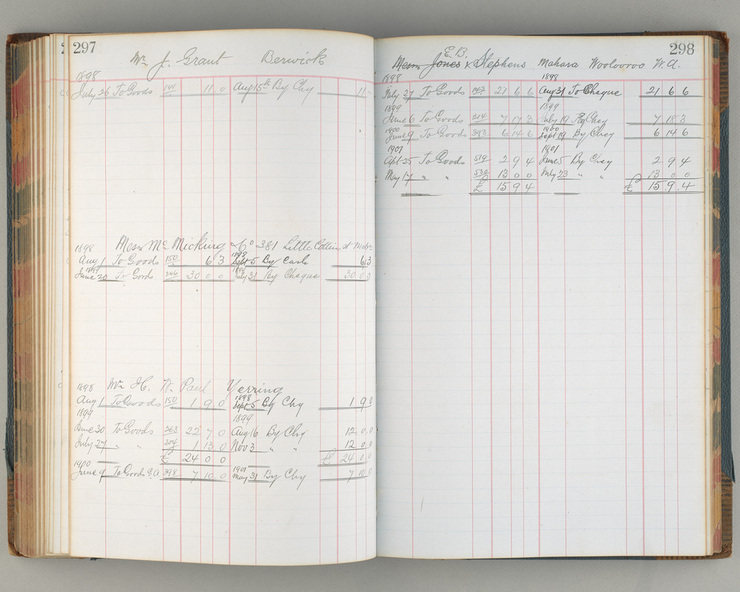 297
Mr J. Grant Berwick
1898
July 26 To Goods 11 0 Aug 15th By Chq 11
1898 Messrs Mc Micking & Co 381 Little Collins St
Aug 1 To Goods 150 6 3 Sept 5 By Cash 6 3
June 20 To Goods 30 0 0 July 31 By Cheque 30 0 0
1898 Mr H. W. Paul Yerring
1898
Aug 1 To Goods 150 1 9 0 Sept 5 By Chq 1 9
1899 1899
June 30 To Goods 263 22 7 0 Aug 16 By Chq 12 0 0
July 27 " " 1 13 0 Nov 3 " " 12 0 0
£ 24 0 0 £ 24 0 0
1900 1900
June 9 To Goods 398 7 10 0 May 31 By Chq 7 10
298
E. B.
Messrs Jones & Stephens Mahara Woolooroo W. A.
1898 1898
July 27 To Goods 21 6 6 Aug 31 To Cheque 21 6 6
1899 1899
June 6 To Goods 7 17 3 July 19 By Chq 7 18 3
1900 1900
June 9 To Goods 398 6 14 6 Sept 19 By Chq 6 14 6
1901 1901
Apl 25 To Goods 519 2 9 4 June 5 By Chq 2 9 4
May 17 " " 13 0 0 July 23 " " 13 0 0
£ 15 9 4 £ 15 9 4